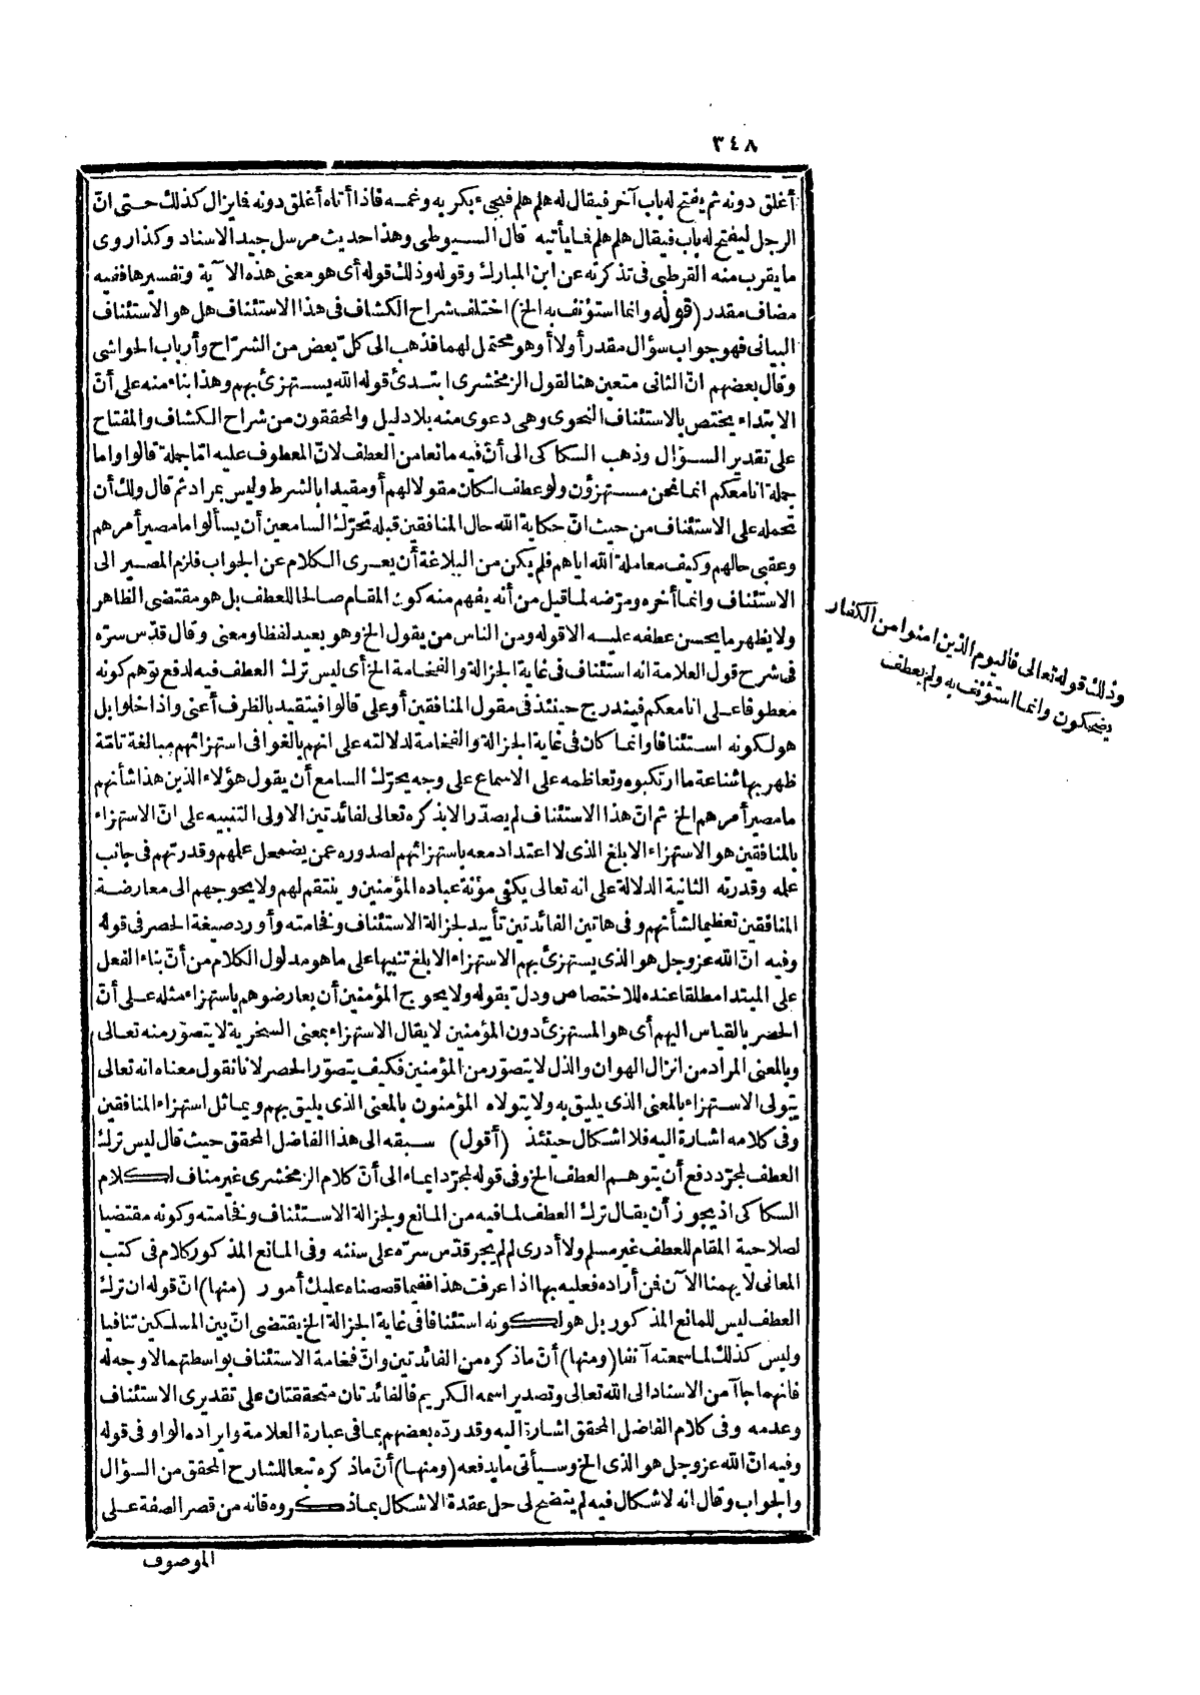 ٣٤٨
أغلق دونه ثم يفتح له باب آخر فيقال له هلم هلم فيجيء بكربه وغمه فاذا أتاه أغلق دونه فمايزال كذلك حتى انّ
الرجل ليفتح له باب فيقال هلم هلم فما يأتيه قال السيوطي وهذا حديث مرسل جيد الاسناد وكذا روى
ما يقرب منه القرطبى فى تذكرته عن ابن المبارك وقوله وذلك قوله أى هو معنى هذه الآية وتفسيرها ففيه
مضاف مقدر (قوله وانما استؤنف به الخ) اختلف شراح الكشاف فى هذا الاستئناف هل هو الاستئناف
البيانى فهو جواب سؤال مقدر أولا أو هو محتمل لهما فذهب الى كلّ بعض من الشرّاح وأرباب الحواشى
وقال بعضهم انّ الثانى متعين هنا لقول الزمخشرى ابتدئ قوله الله يستهزئ بهم وهذا بناء منه على أنّ
الابتداء يختص بالاستئناف النحوى وهى دعوى منه بلا دليل والمحققون من شراح الكشاف والمفتاح
على تقدير السؤال وذهب السكاكى الى أنّ فيه مانعا من العطف لانّ المعطوف عليه امّا جملة قالوا واما
جملة انا معكم انما نحن مستهزؤن ولو عطف لكان مقولا لهم أو مقيدا بالشرط وليس بمراد ثم قال ولك أن
تحمله على الاستئناف من حيث انّ حكاية الله حال المنافقين قبله تحرّك السامعين أن يسألوا ما مصير أمرهم
وعقبى حالهم وكيف معاملة الله اياهم فلم يكن من البلاغة أن يعرى الكلام عن الجواب فلزم المصير الى
الاستئناف وانما أخره ومرّضه لما قيل من أنه يفهم منه كون المقام صالحا للعطف بل هو مقتضى الظاهر
ولا يظهر ما يحسن عطفه عليه الا قوله ومن الناس من يقول الخ وهو بعيد لفظا ومعنى وقال قدّس سرّه
فى شرح قول العلامة انه استئناف فى غاية الجزالة والفخامة الخ أى ليس ترك العطف فيه لدفع توهم كونه
معطوفا على انا معكم فيندرج حينئذ فى مقول المنافقين أو على قالوا فيتقيد بالظرف أعنى واذا خلوا بل
هو لكونه استئنافا وانما كان فى غاية الجزالة والفخامة لدلالته على انهم بالغوا فى استهزائهم مبالغة تامّة
ظهر بها شناعة ما ارتكبوه وتعاظمه على الاسماع على وجه يحرّك السامع أن يقول هؤلاء الذين هذا شأنهم
ما مصير أمرهم الخ ثم انّ هذا الاستئناف لم يصدّر الا بذكره تعالى لفائدتين الاولى التنبيه على انّ الاستهزاء
بالمنافقين هو الاستهزاء الابلغ الذى لا اعتداد معه باستهزائهم لصدوره عمن يضمحل علمهم وقدرتهم فى جانب
علمه وقدرته الثانية الدلالة على انه تعالى يكفى مؤنة عباده المؤمنين وينتقم لهم ولا يحوجهم الى معارضة
المنافقين تعظيما لشأنهم وفى هاتين الفائدتين تأييد لجزالة الاستئناف وفخامته وأورد صيغة الحصر فى قوله
وفيه انّ الله عز وجل هو الذى يستهزئ بهم الاستهزاء الابلغ تنبيها على ما هو مدلول الكلام من أنّ بناء الفعل
على المبتدا مطلقا عنده للاختصاص ودلّ بقوله ولا يحوج المؤمنين أن يعارضوهم باستهزاء مثله على أنّ
الحصر بالقياس اليهم أى هو المستهزئ دون المؤمنين لا يقال الاستهزاء بمعنى السخرية لا يتصوّر منه تعالى
وبالمعنى المراد من انزال الهوان والذل لا يتصور من المؤمنين فكيف يتصوّر الحصر لانا نقول معناه انه تعالى
يتولى الاستهزاء بالمعنى الذى يليق به ولا يتولاه المؤمنون بالمعنى الذى يليق بهم ويماثل استهزاء المنافقين
وفى كلامه اشارة اليه فلا اشكال حينئذ (أقول) سبقه الى هذا الفاضل المحقق حيث قال ليس ترك
العطف لمجرّد دفع أن يتوهم العطف الخ وفى قوله لمجرّد ايماء الى أنّ كلام الزمخشرى غير مناف لكلام
السكاكى اذ يجوز أن يقال ترك العطف لما فيه من المانع ولجزالة الاستئناف وفخامته وكونه مقتضيا
لصلاحية المقام للعطف غير مسلم ولا أدرى لم لم يجر قدّس سرّه على سننه وفى المانع المذكور كلام فى كتب
المعانى لا يهمنا الآن فمن أراده فعليه بها اذا عرفت هذا ففيما قصصناه عليك أمور (منها) انّ قوله ان ترك
العطف ليس للمانع المذكور بل هو لكونه استئنافا فى غاية الجزالة الخ يقتضى انّ بين المسلكين تنافيا
وليس كذلك لما سمعته آنفا (ومنها) أنّ ما ذكره من الفائدتين وانّ فخامة الاستئناف بواسطتهما لا وجه له
فانهما جاآ من الاسناد الى الله تعالى وتصدير اسمه الكريم فالفائدتان متحققتان على تقديرى الاستئناف
وعدمه وفى كلام الفاضل المحقق اشارة اليه وقد ردّه بعضهم بما فى عبارة العلامة وايراده الواو فى قوله
وفيه انّ الله عز وجل هو الذى الخ وسيأتى ما يدفعه (ومنها) أنّ ما ذكره تبعا للشارح المحقق من السؤال
والجواب وقال انه لا شكال فيه لم يتضح لى حل عقدة الاشكال بما ذكروه فانه من قصر الصفة على
الموصوف
وذلك قوله تعالى فاليوم الذين امنوا من الكفار
يضحكون وانما استؤنف به ولم يعطف